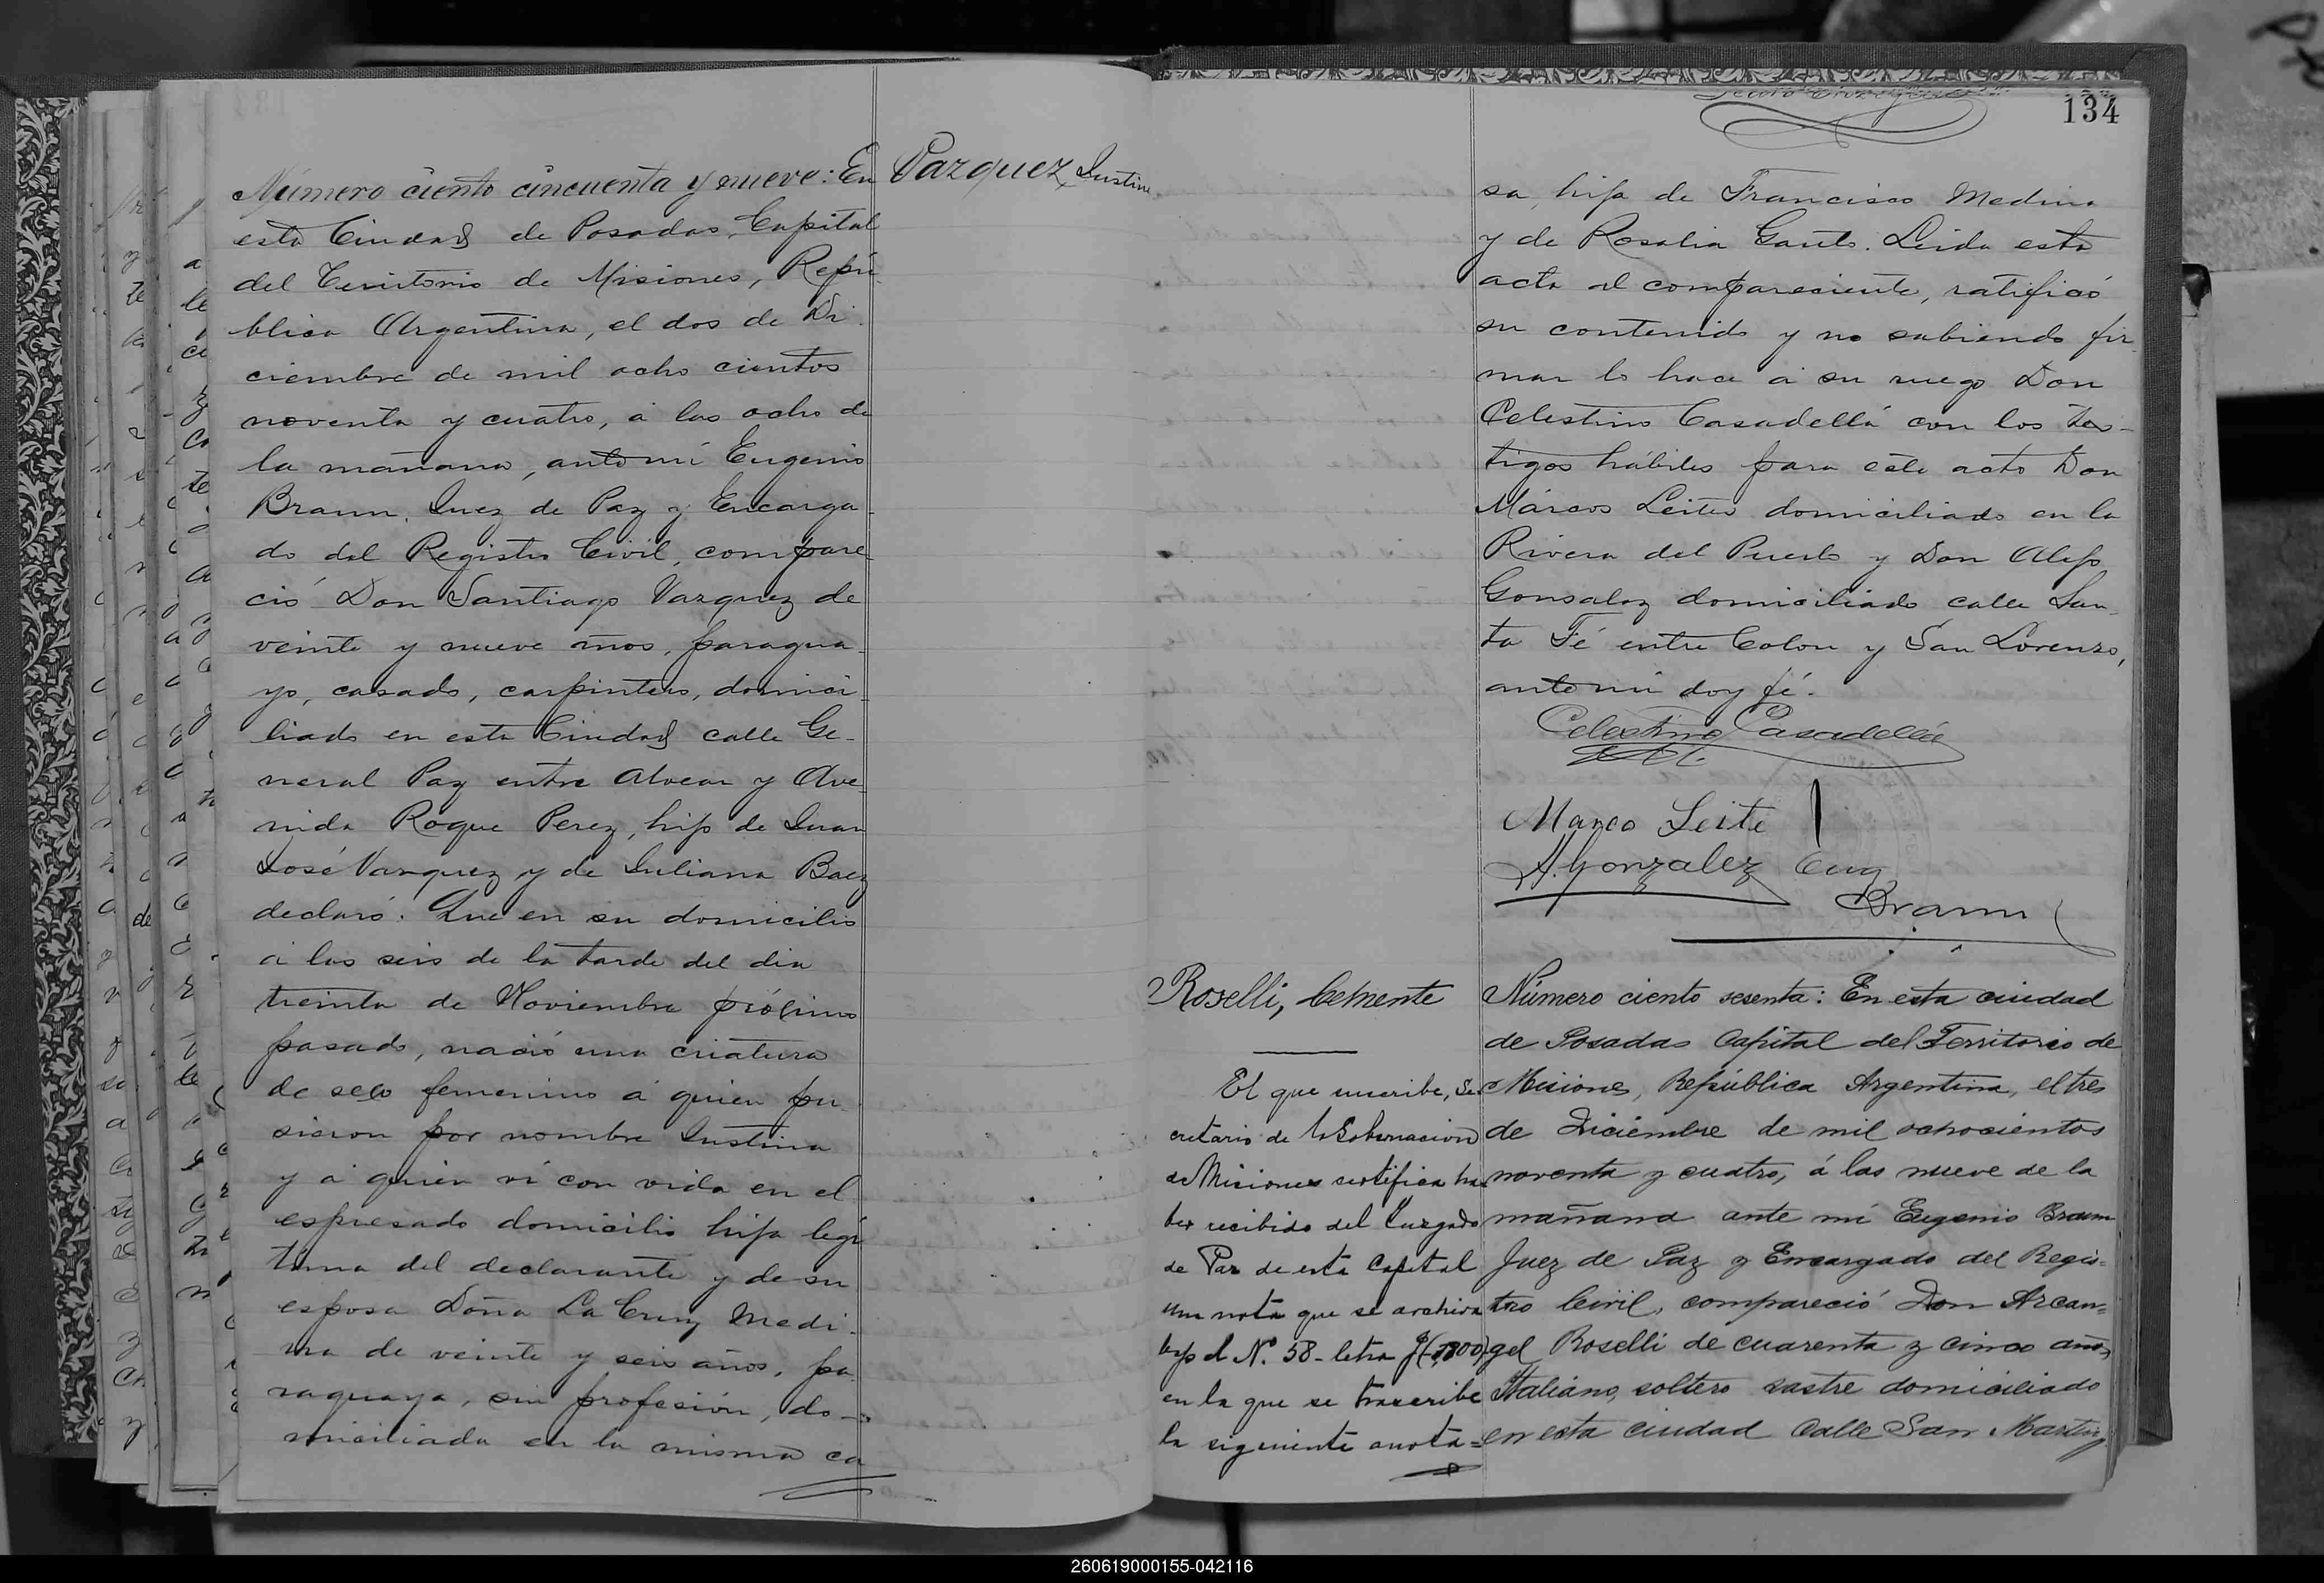 Número ciento cincuenta y nueve: En
esta Ciudad de Posadas, Capital
del Territorio de Misiones, Repú
blica Argentina, el dos de Di
ciembre de mil ocho cientos
noventa y cuatro, á las ocho de
la mañana, ante mí Eugenio
Braun, Juez de Paz y Encarga-
do del Registro Civil, compare
ció Don Santiago Vazquez de
veinte y nueve años, paragua-
yo, casado, carpintero, domici-
liado en esta Ciudad calle Ge-
neral Paz entre Alvear y Ave
nida Roque Perez, hijo de Juan
José Vazquez y de Juliana Baez
declaró: Que en su domicilio
á las seis de la tarde del dia
treinta de Noviembre próximo
pasado, nació una criatura
de sexo femenino á quien pu-
sieron por nombre Justina
y á quien ví con vida en el
espresado domicilio hija legí
tima del declarante y de su
esposa Doña La Cruz Medi-
na de veinte y seis años, pa-
raguaya, sin profesión, do-
miciliada en la misma ca
Vazquez, Justina
134
sa, hija de Francisco Medina
y de Rosalia Gauto. Leida esta
acta al compareciente, ratificó
su contenido y no sabiendo fir
mar lo hace á su ruego Don
Celestino Casadellá con los tes-
tigos hábiles para este acto Don
Márcos Leites domiciliado en la
Rivera del Puerto y Don Alejo
Gonsalez domiciliado calle San-
ta Fé entre Colon y San Lorenzo,
ante mí doy fé.
Celestino Casadellá
Marco Leite
A. Gonzalez Eug
Braun
Roselli, Clemente
El que suscribe, Se
cretario de la Gobernacion
de Misiones certifica ha
ber recibido del Juzgado
de Paz de esta Capital
una nota que se archiva
bajo el Nº. 58- letra J (1800)
en la que se trascribe
la siguiente anota=
Número ciento sesenta: En esta ciudad
de Posadas Capital del Territorio de
Misiones, República Argentina, el tres
de Diciembre de mil ochocientos
noventa y cuatro, á las nueve de la
mañana ante mí Eugenio Braun
Juez de Paz y Encargado del Regis=
tro Civil, compareció Don Arcan=
gel Roselli de cuarenta y cinco años,
Italiano, soltero sastre domiciliado
en esta ciudad Calle San Martin
260619000155-042116